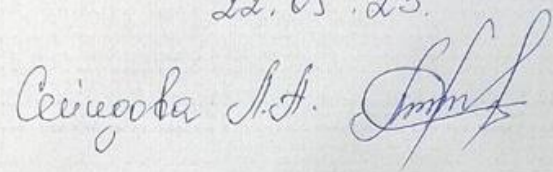 22.03.23.
Сеиидова Л.А.